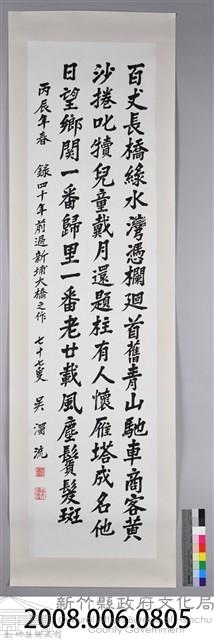 百丈長橋綠水灣憑欄迴首舊青山馳車商客黃
沙捲叱犢兒童戴月還題柱有人懷雁塔成名他
日望鄉関一番歸里一番老廿載風塵鬢髮斑
丙辰年春 錄四十年前過新埔大橋之作 七十七叟 吳濁流
新竹縣政府文化局
County Government
2008.006.0805